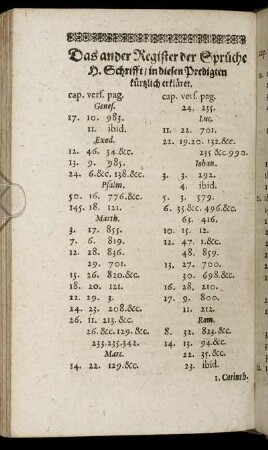 Das ander Register der Sprüche
H. Schrifft/ in diesen Predigten
kürtzlich erkläret.
cap. vers. pag.
Genes.
17. 10. 983.
11. ibid.
Exod.
12. 46. 54.&c.
13. 9. 985.
24. 6.&c. 138.&c.
Psalm.
50. 16. 776.&c.
145. 18. 121.
Matth.
3. 17. 855.
7. 6. 819.
12. 28. 836.
29. 701.
15. 26. 820.&c.
18. 20. 121.
22. 29. 3.
24. 23. 208.&c.
26. 11. 213.&c.
26.&c. 129.&c.
233.235.342.
Marc.
14. 22. 129.&c.
cap. vers. pag.
24. 235.
Luc.
11. 22. 701.
22. 19.20. 132.&c.
235 &c.990.
Iohan.
3. 3. 292.
4. ibid.
5. 3. 579.
6. 35.&c. 496.&c.
63. 416.
10. 15. 12.
12. 47. 1.&c.
48. 859.
13. 27. 700.
30. 698.&c.
16. 28. 210.
17. 9. 800.
11. 212.
Rom.
8. 32. 823.&c.
14. 13. 94.&c.
22. 35.&c.
23. ibid.
1. Corinth.